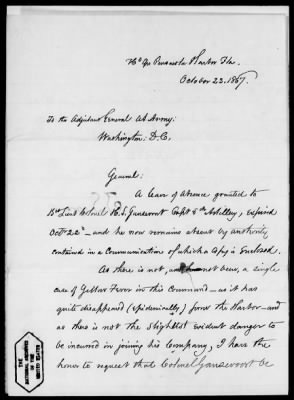 Hd Qrs Pensacola Harbor Fla.
October 23. 1867.
To the Adjutant General U.S. Army:
Washington: D.C.
General:
A leave of absence granted to
Bt Lieut Colonel H. S. Gansevoort Capt 5th Artillery, expired
Octr 22d - and he now remains absent by authority
contained in a Communication of which a Copy is Enclosed.
As there is not, not been, a single
case of Yellow Fever in this Command - as it has
quite disappeared (epidemically) from the Harbor - and
as there is not the slightest evident danger to
be incurred in joining his Company, I have the
honor to request that Colonel Gansevoort be
THE
NATIONAL ARCHIVES
OF THE
UNITED STATES